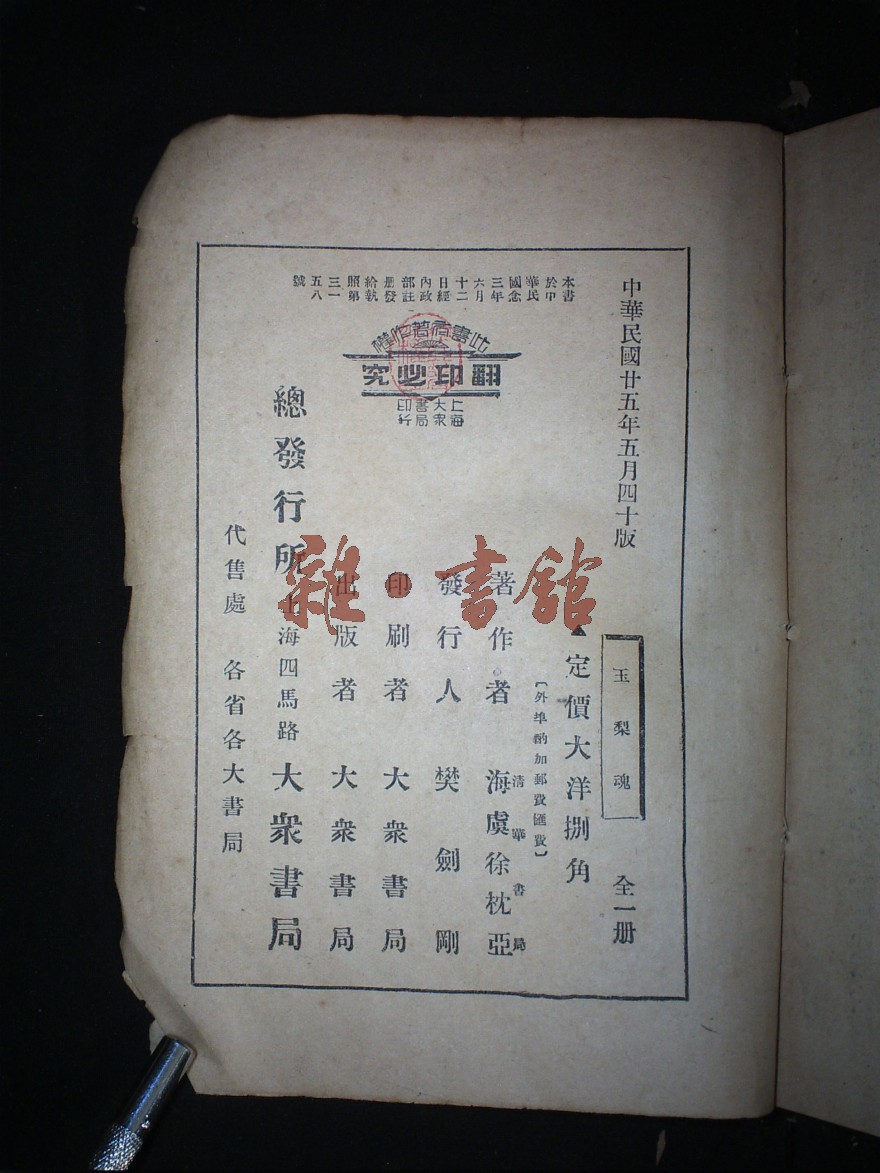 中華民國廿五年五月四十版
玉梨魂
全一册
▲定價大洋捌角
〔外埠酌加郵費匯費〕
著作者 海虞徐枕亞
清華書局
發行人 樊劍剛
印刷者 大衆書局
出版者 大衆書局
總發行所 上海四馬路 大衆書局
代售處 各省各大書局
本書於中華民國念三年六月十二日經內政部註册發給執照第三一五八號
此書有著作權
翻印必究
上海大衆書局印行
雜·書館